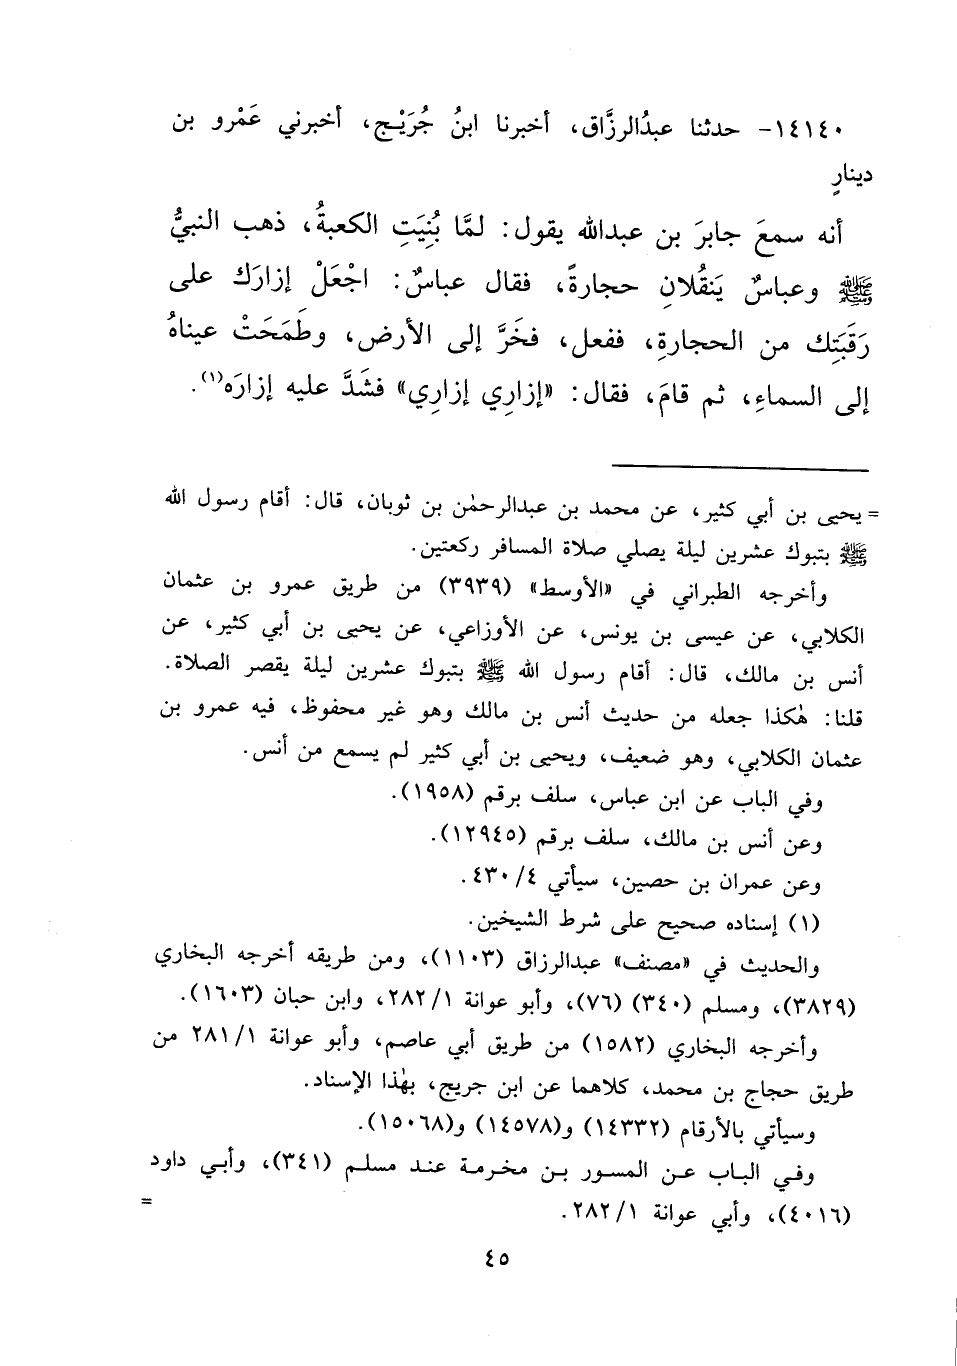 ١٤١٤٠- حدثنا عبدُالرزَّاق، أخبرنا ابنُ جُرَيْج، أخبرني عَمْرو بن
دينارٍ
أنه سمعَ جابرَ بن عبدالله يقول: لمَّا بُنِيَتِ الكعبةُ، ذهب النبيُّ
ﷺ وعباسٌ يَنقُلانِ حجارةً، فقال عباسٌ: اجْعَلْ إزارَك على
رَقَبَتِك من الحجارةِ، ففعل، فخَرَّ إلى الأرض، وطَمَحَتْ عيناهُ
إلى السماءِ، ثم قامَ، فقال: «إزارِي إزارِي» فشَدَّ عليه إزارَه(١).
= يحيى بن أبي كثير، عن محمد بن عبدالرحمٰن بن ثوبان، قال: أقام رسول الله
ﷺ بتبوك عشرين ليلة يصلي صلاة المسافر ركعتين.
وأخرجه الطبراني في «الأوسط» (٣٩٣٩) من طريق عمرو بن عثمان
الكلابي، عن عيسى بن يونس، عن الأوزاعي، عن يحيى بن أبي كثير، عن
أنس بن مالك، قال: أقام رسول الله ﷺ بتبوك عشرين ليلة يقصر الصلاة.
قلنا: هٰكذا جعله من حديث أنس بن مالك وهو غير محفوظ، فيه عمرو بن
عثمان الكلابي، وهو ضعيف، ويحيى بن أبي كثير لم يسمع من أنس.
وفي الباب عن ابن عباس، سلف برقم (١٩٥٨).
وعن أنس بن مالك، سلف برقم (١٢٩٤٥).
وعن عمران بن حصين، سيأتي ٤/ ٤٣٠.
(١) إسناده صحيح على شرط الشيخين.
والحديث في «مصنف» عبدالرزاق (١١٠٣)، ومن طريقه أخرجه البخاري
(٣٨٢٩)، ومسلم (٣٤٠) (٧٦)، وأبو عوانة ١/ ٢٨٢، وابن حبان (١٦٠٣).
وأخرجه البخاري (١٥٨٢) من طريق أبي عاصم، وأبو عوانة ١/ ٢٨١ من
طريق حجاج بن محمد، كلاهما عن ابن جريج، بهٰذا الإسناد.
وسيأتي بالأرقام (١٤٣٣٢) و(١٤٥٧٨) و(١٥٠٦٨).
وفي الباب عن المسور بن مخرمة عند مسلم (٣٤١)، وأبي داود
(٤٠١٦)، وأبي عوانة ١/ ٢٨٢. =
٤٥